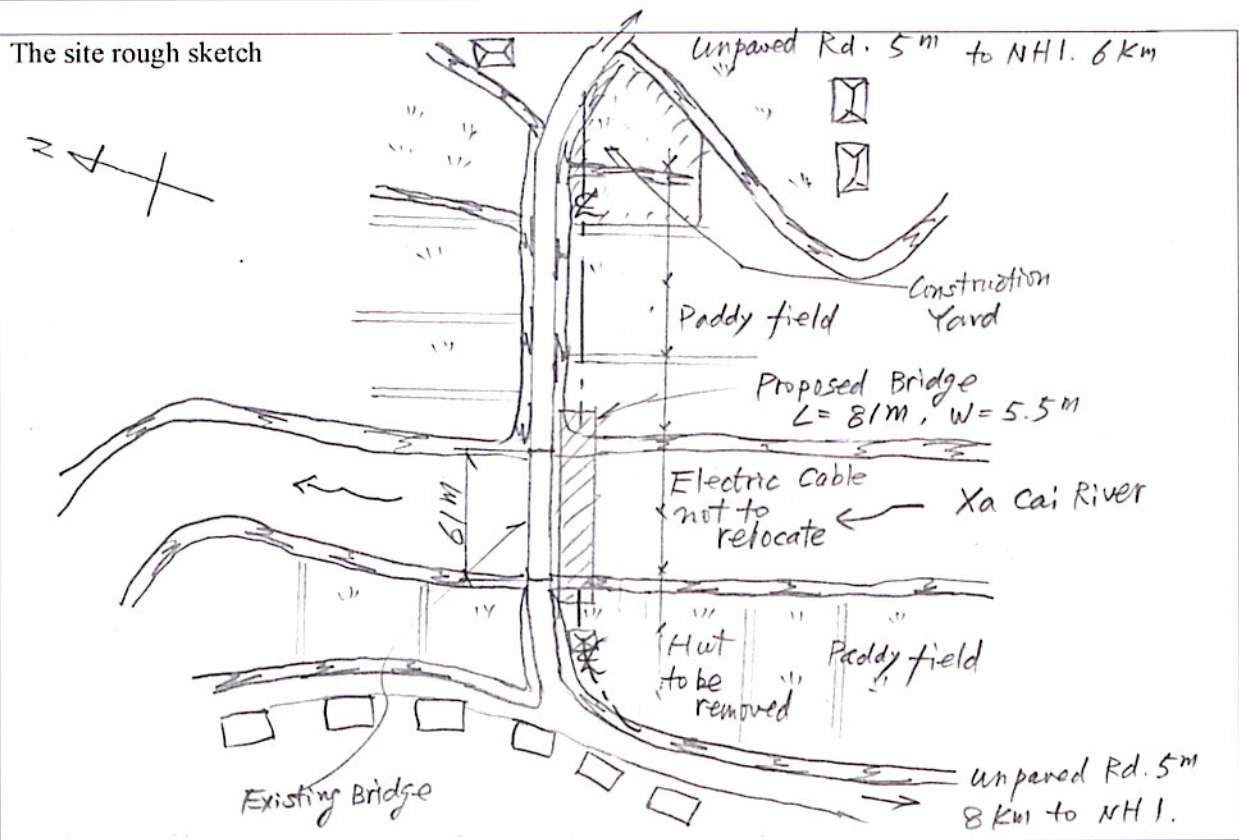 The site rough sketch
Unpaved Rd. 5m to NH1. 6Km
N
Construction
Yard
Paddy field
Proposed Bridge
L = 81m, W = 5.5m
61m
Electric Cable
not to
relocate
Xa Cai River
Hut
to be
removed
Paddy field
Existing Bridge
Unpaved Rd. 5m
8 Km to NH 1.